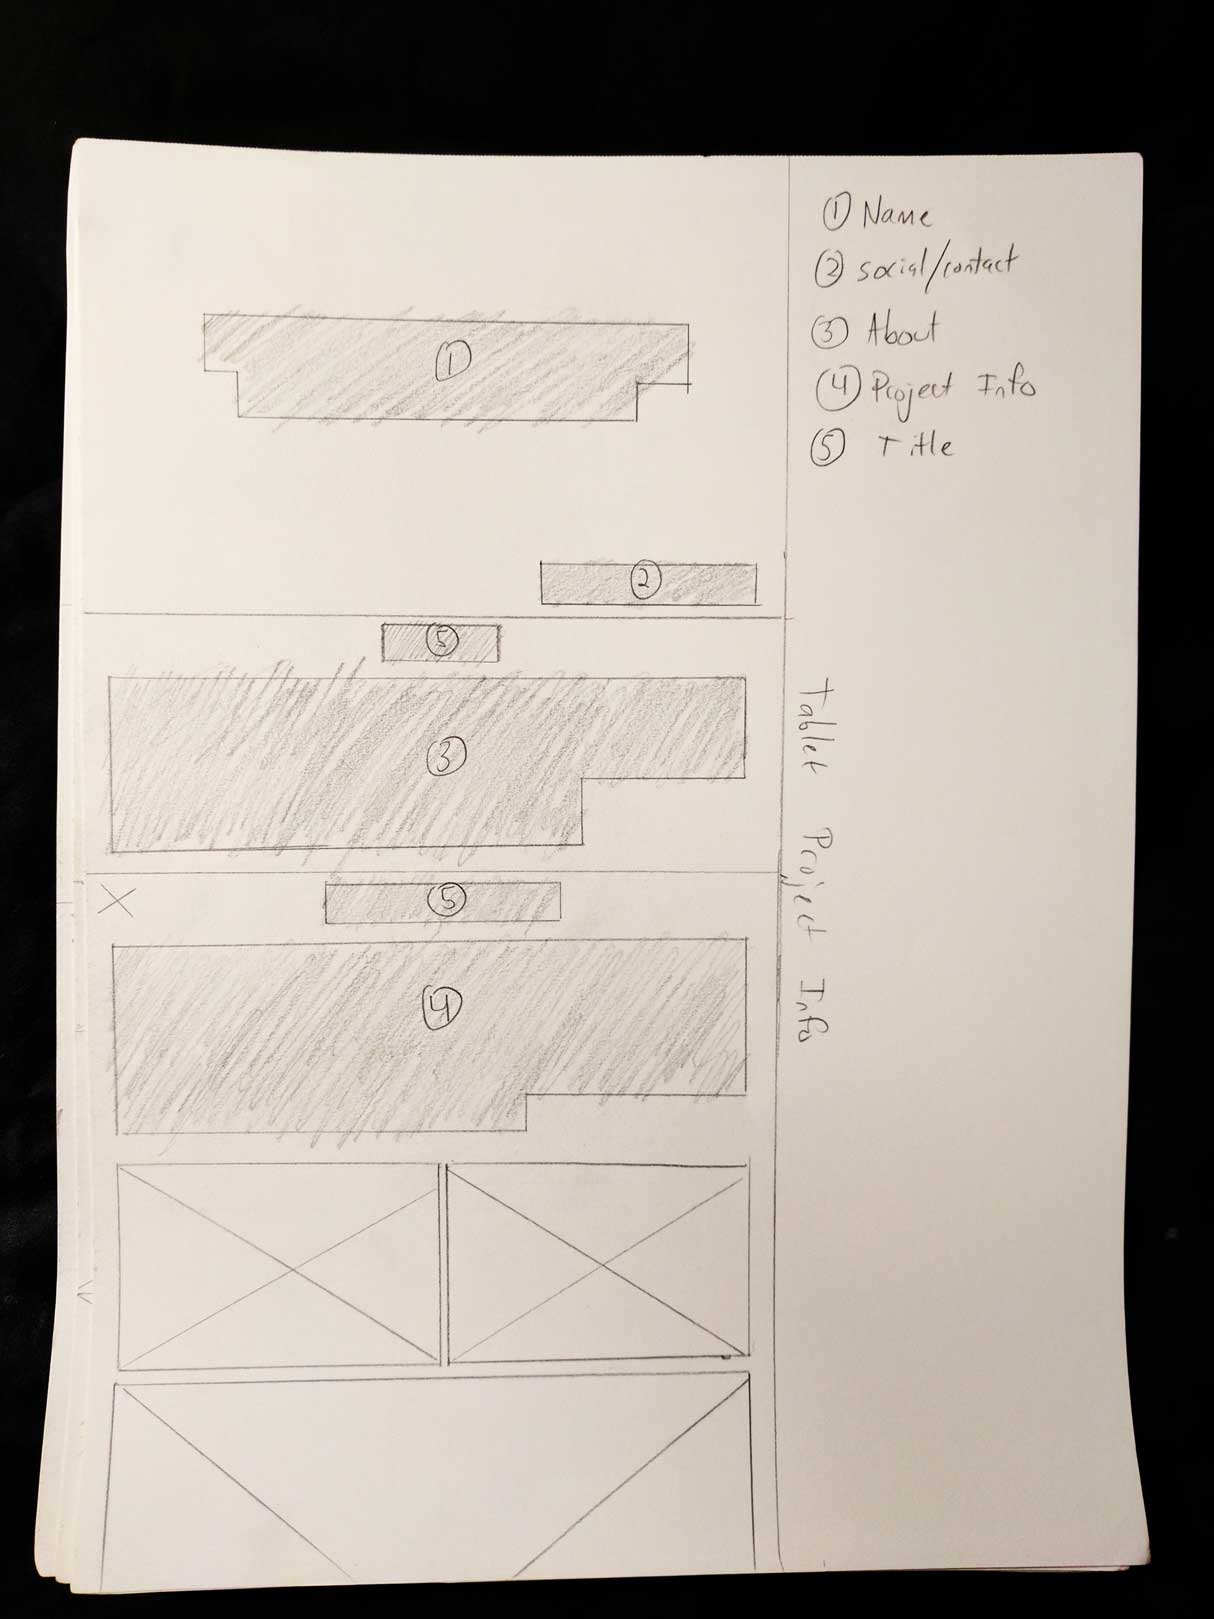 ① Name
② social/contact
③ About
④ Project Info
⑤ Title
①
②
⑤
③
X
⑤
④
Tablet Project Info